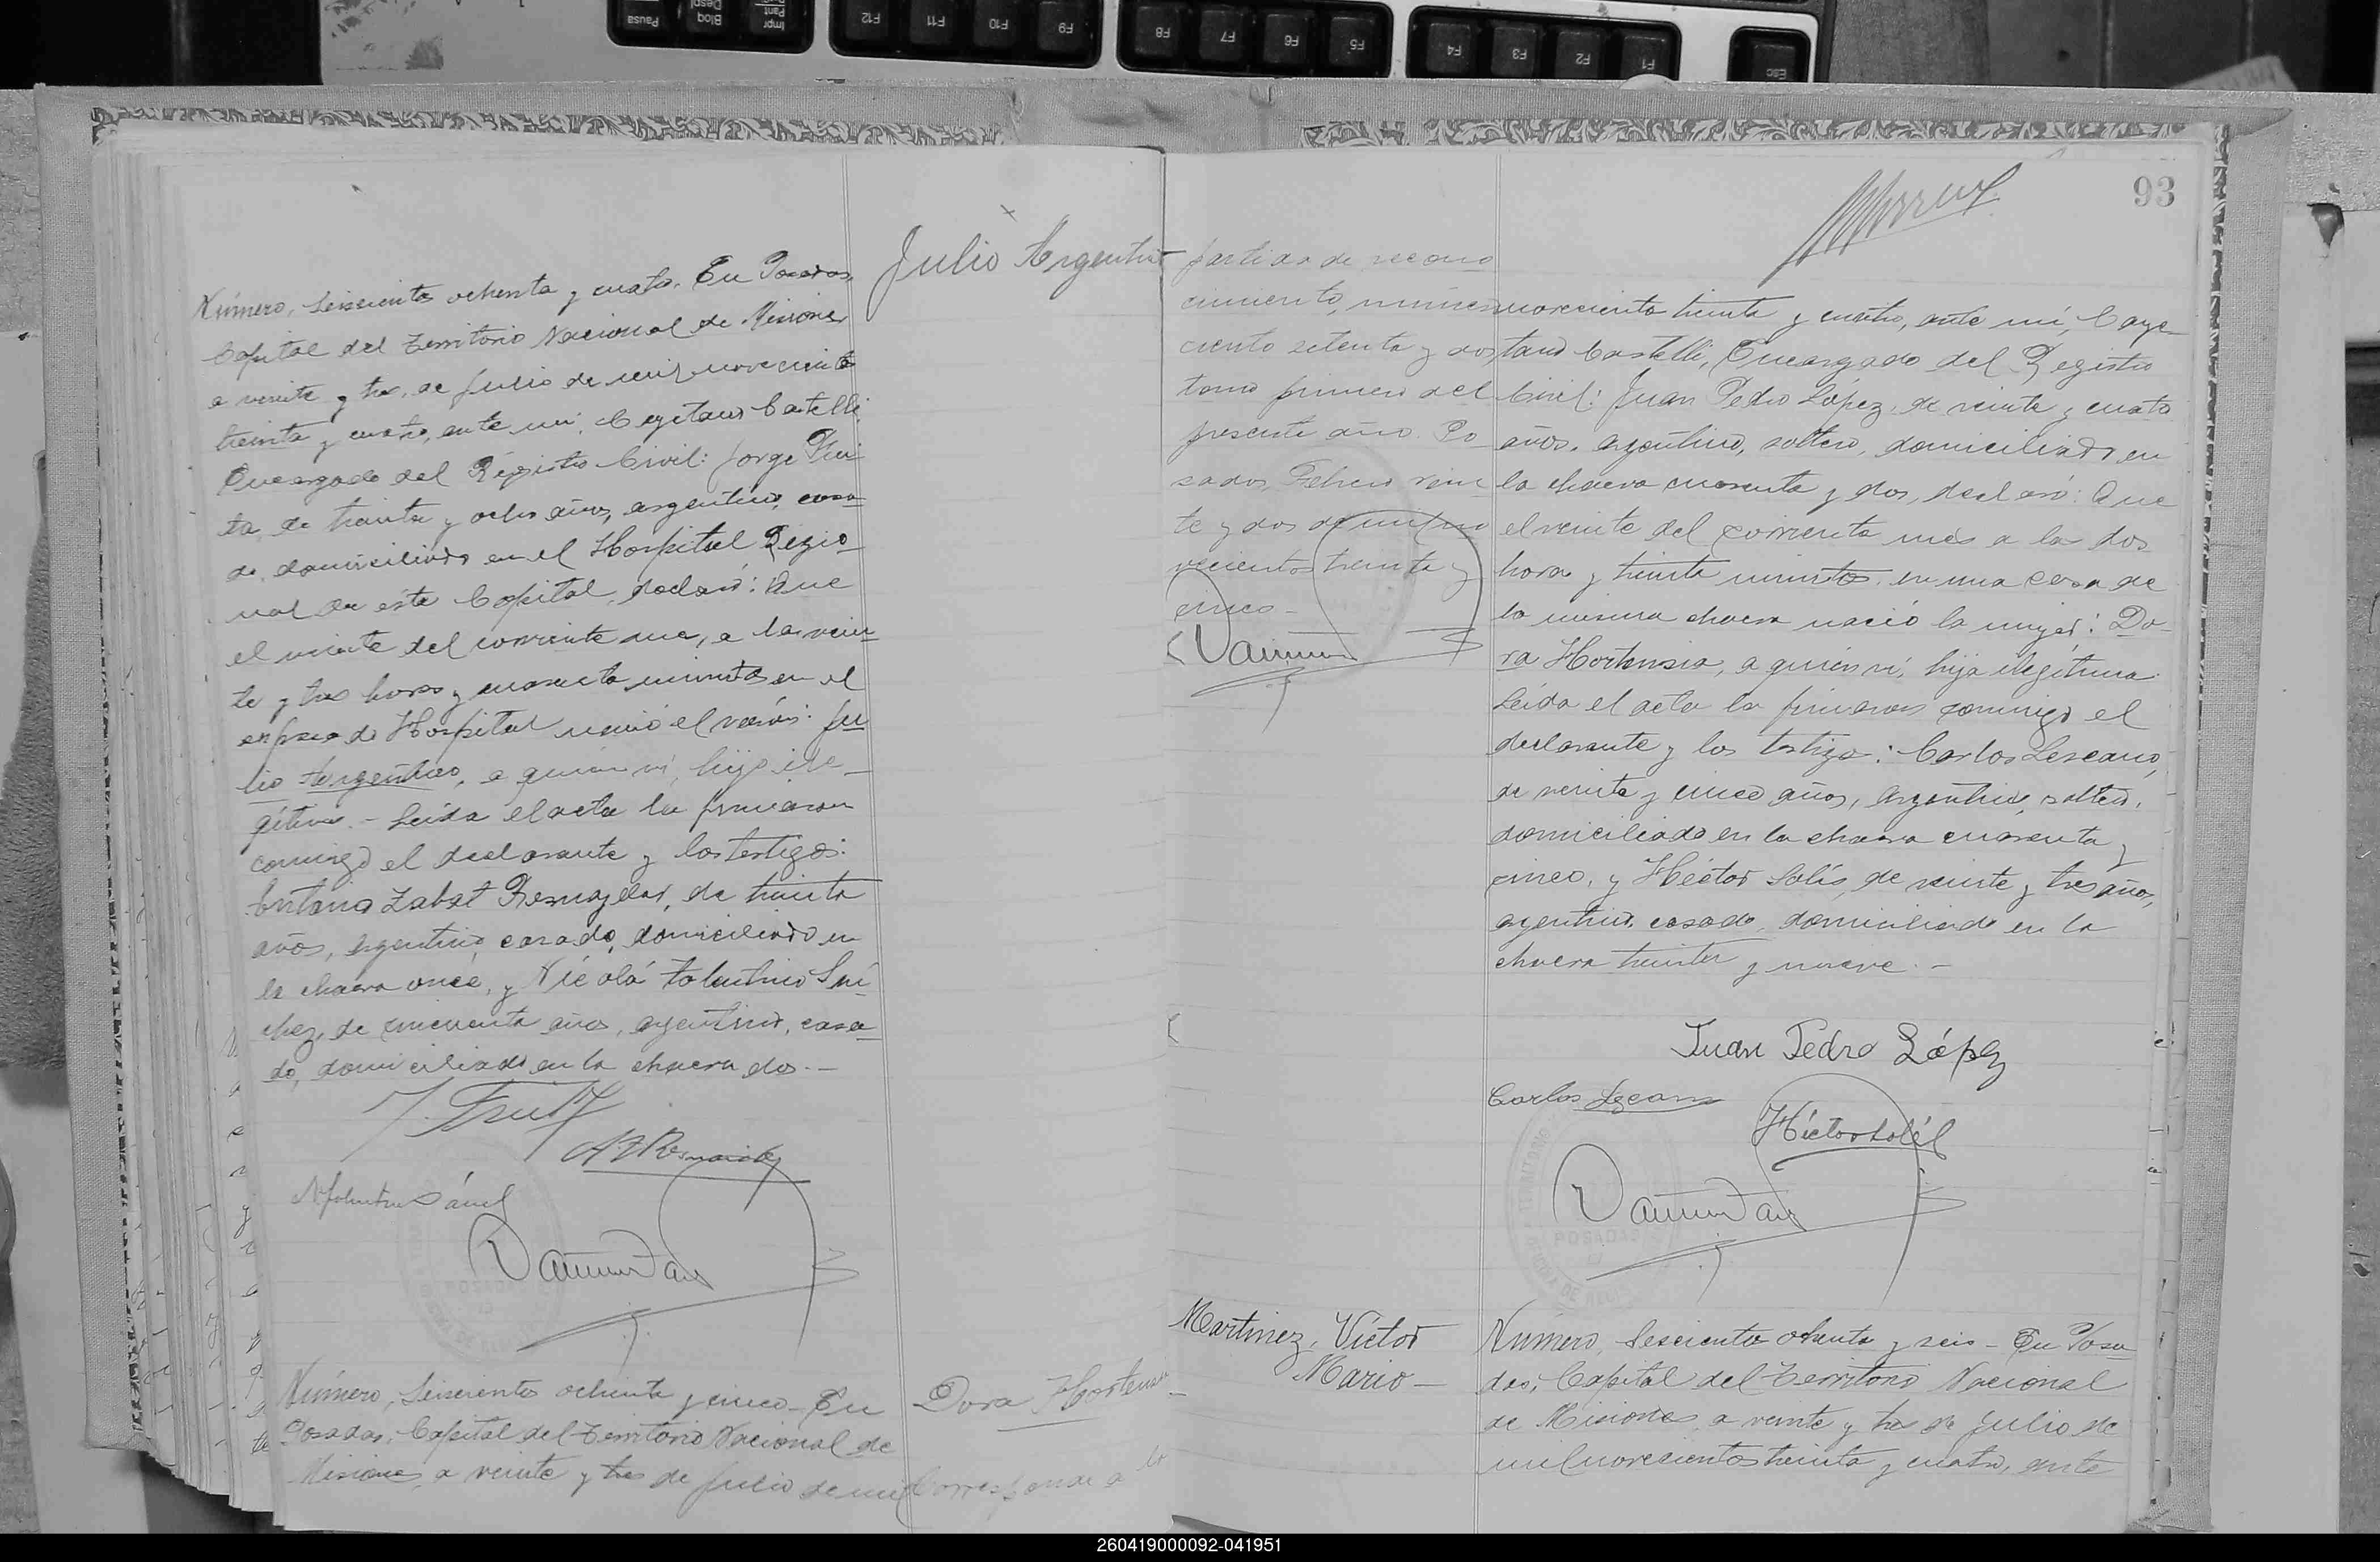 Pausa
Bloq
Despl
Impr
Pant
F12
F11
F10
F9
F8
F7
F6
F5
F4
F3
F2
F1
Esc
Julio Argentin
Número, Seiscientos ochenta y cuatro. En Posadas,
Capital del Territorio Nacional de Misiones
a veinte y tres de Julio de mil novecientos
treinta y cuatro, ante mi, Cayetano Castelli,
Encargado del Registro Civil: Jorge
ta, de treinta y ocho años, argentino, casa-
do, domiciliado en el Hospital Regio-
nal de esta Capital, declaró: Que
el veinte del corriente mes, a las vein-
te y tres horas y cuarenta minutos en el
expresado Hospital nació el varón: Ju-
lio Argentino, a quien ví, hijo ile-
gítimo.- Leída el acta la firmaron
conmigo el declarante y los testigos:
Antonio Zabat de treinta
años, argentino, casado, domiciliado en
la chacra once, y Nicolá Tolentino Sán-
chez, de cincuenta años, argentino, casa-
do, domiciliado en la chacra dos.-
Número, Seiscientos ochenta y cinco- En
Posadas, Capital del Territorio Nacional de
Misiones, a veinte y tres de Julio de mil
Dora Hortensia
Corresponde a la
93
partida de recono-
cimiento, número
ciento setenta y dos
tomo primero del
presente año. Po-
sadas, Febrero vein-
te y dos de mil no-
vecientos treinta y
cinco-
novecientos treinta y cuatro, ante mí, Caye-
tano Castelli, Encargado del Registro
Civil: Juan Pedro López, de veinte y cuatro
años, argentino, soltero, domiciliado en
la chacra cuarenta y dos, declaró: Que
el veinte del corriente mes a las dos
horas y treinta minutos, en una casa de
la misma chacra nació la mujer: Do-
ra Hortensia, a quién ví, hija ilegítima.
Leída el acta la firmaron conmigo el
declarante y los testigos: Carlos Lescano,
de veinte y cinco años, argentino, soltero,
domiciliado en la chacra cuarenta y
cinco, y Héctor Solís, de veinte y tres años,
argentino, casado, domiciliado en la
chacra treinta y nueve.-
Juan Pedro López
Carlos Lezcano
Martinez, Víctor
Mario-
Número, Seiscientos ochenta y seis- En Posa-
das, Capital del Territorio Nacional
de Misiones, a veinte y tres de Julio de
mil novecientos treinta y cuatro, ante
260419000092-041951